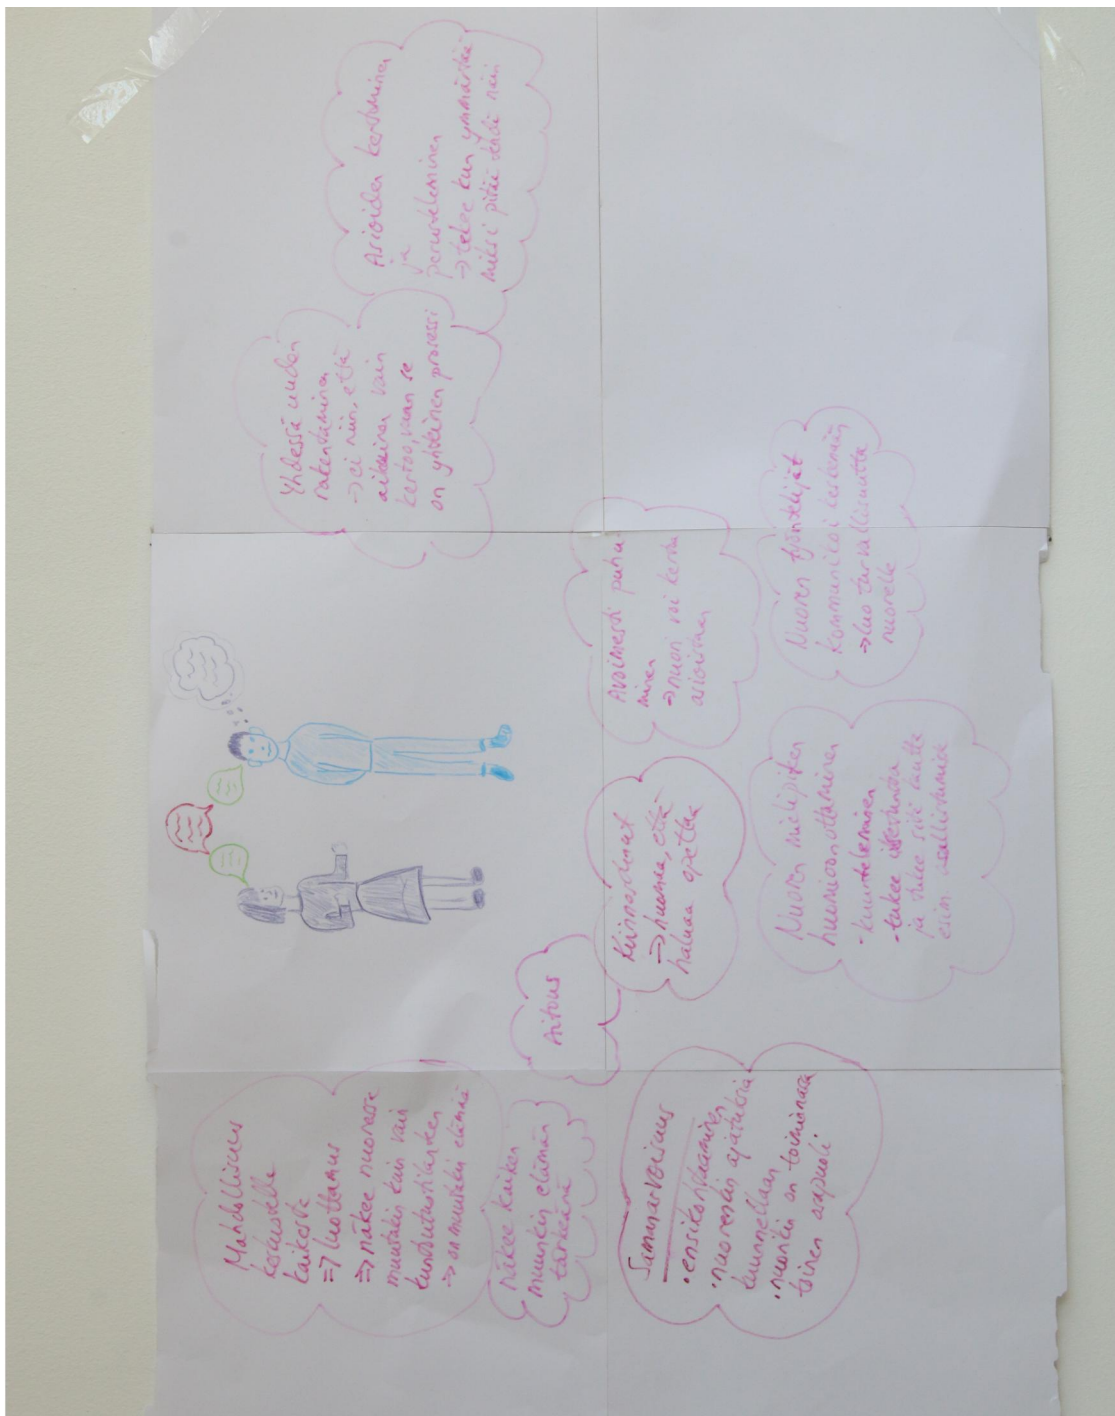 Mahdollisuus
keskustella
kaikesta
=> luottamus
=> näkee nuoresta
muutakin kuin vain
kuntoutustilanteen
=> on muutakin elämää
näkee kaiken
muunkin elämän
tärkeänä
Aitous
Samanarvoisuus
• ensikohtaaminen
• nuorenkin ajatuksia
kuunnellaan
• nuorikin on toiminnassa
toinen osapuoli
Kiinnostunut
=> huomaa, että
haluaa opettaa
Nuoren mielipiteen
huomioonottaminen
• kuunteleminen
• tukee itsetuntoa
ja tukee sitä kautta
esim. osallistumista
Avoimesti puhu-
minen
=> nuori voi kertoa
asioistaan
Nuoren työntekijät
kommunikoi keskenään
=> luo turvallisuutta
nuorelle
Yhdessä uuden
rakentaminen
=> ei niin, että
aikuinen vain
kertoo, vaan se
on yhteinen prosessi
Asioiden kertominen
ja
perusteleminen
=> tekee kun ymmärtää
miksi pitää tehdä näin